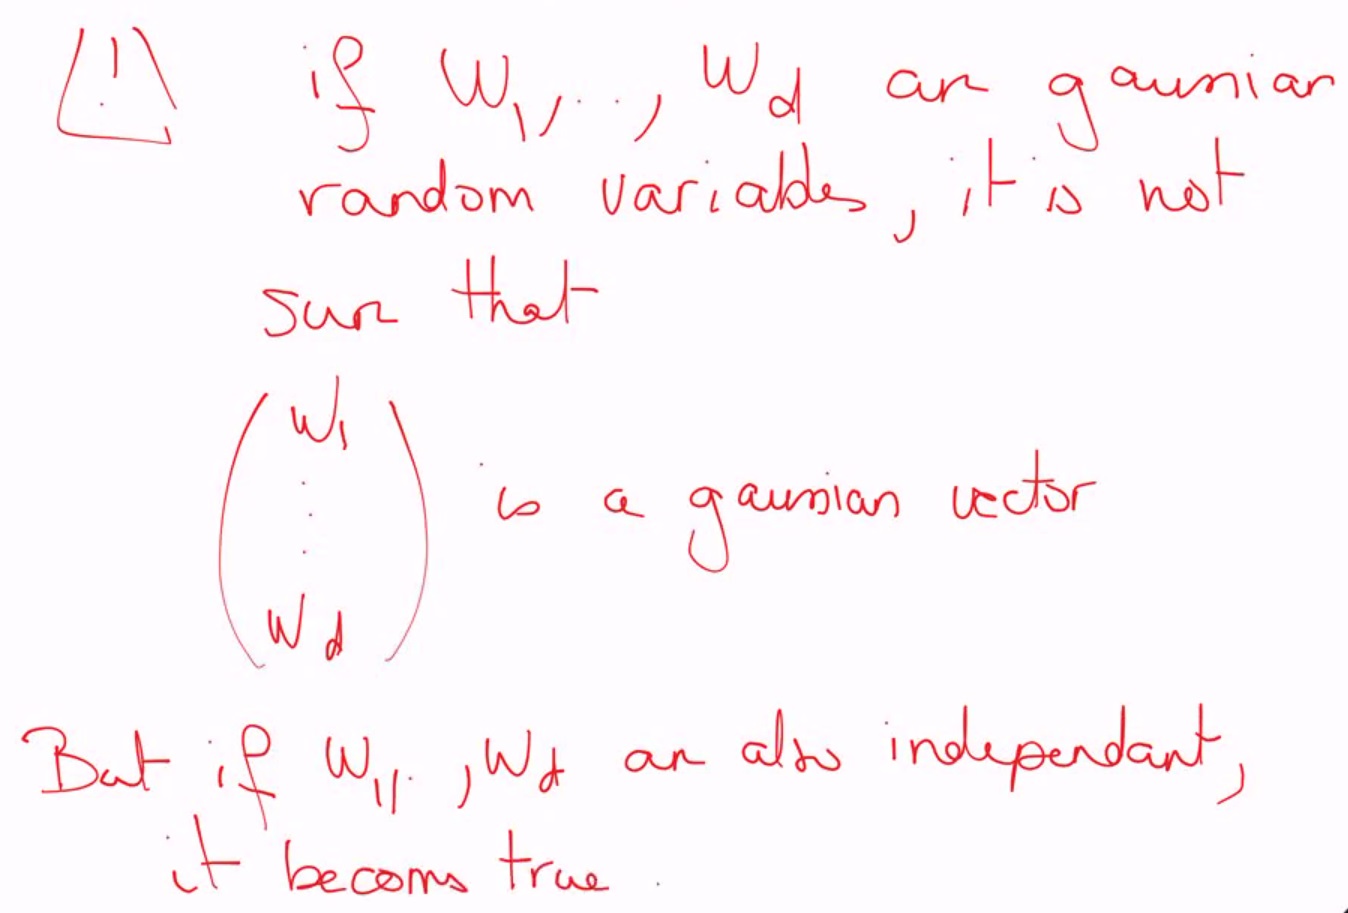 ! if W₁, .., W_d are gaussian
random variables, it is not
sure that
W₁
.
.
.
W_d
is a gaussian vector
But if W₁, ., W_d are also independant,
it becoms true.